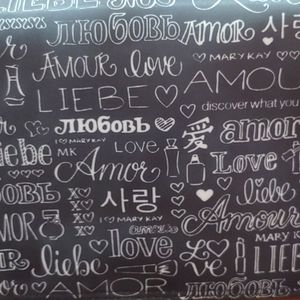 LIEBE
ЛЮБОВЬ AMOR 사랑
AMOUR love I ♡ MARY KAY
LIEBE ♥ AMOUR
discover what you
ЛЮБОВЬ 愛 amor
liebe MK LOVE
Amor Love
사랑 liebe
ОВЬ XO I ♡ MARY KAY
AMOR Amour
love I ♡ MARY KAY
liebe Love liebe
AMOR Любовь